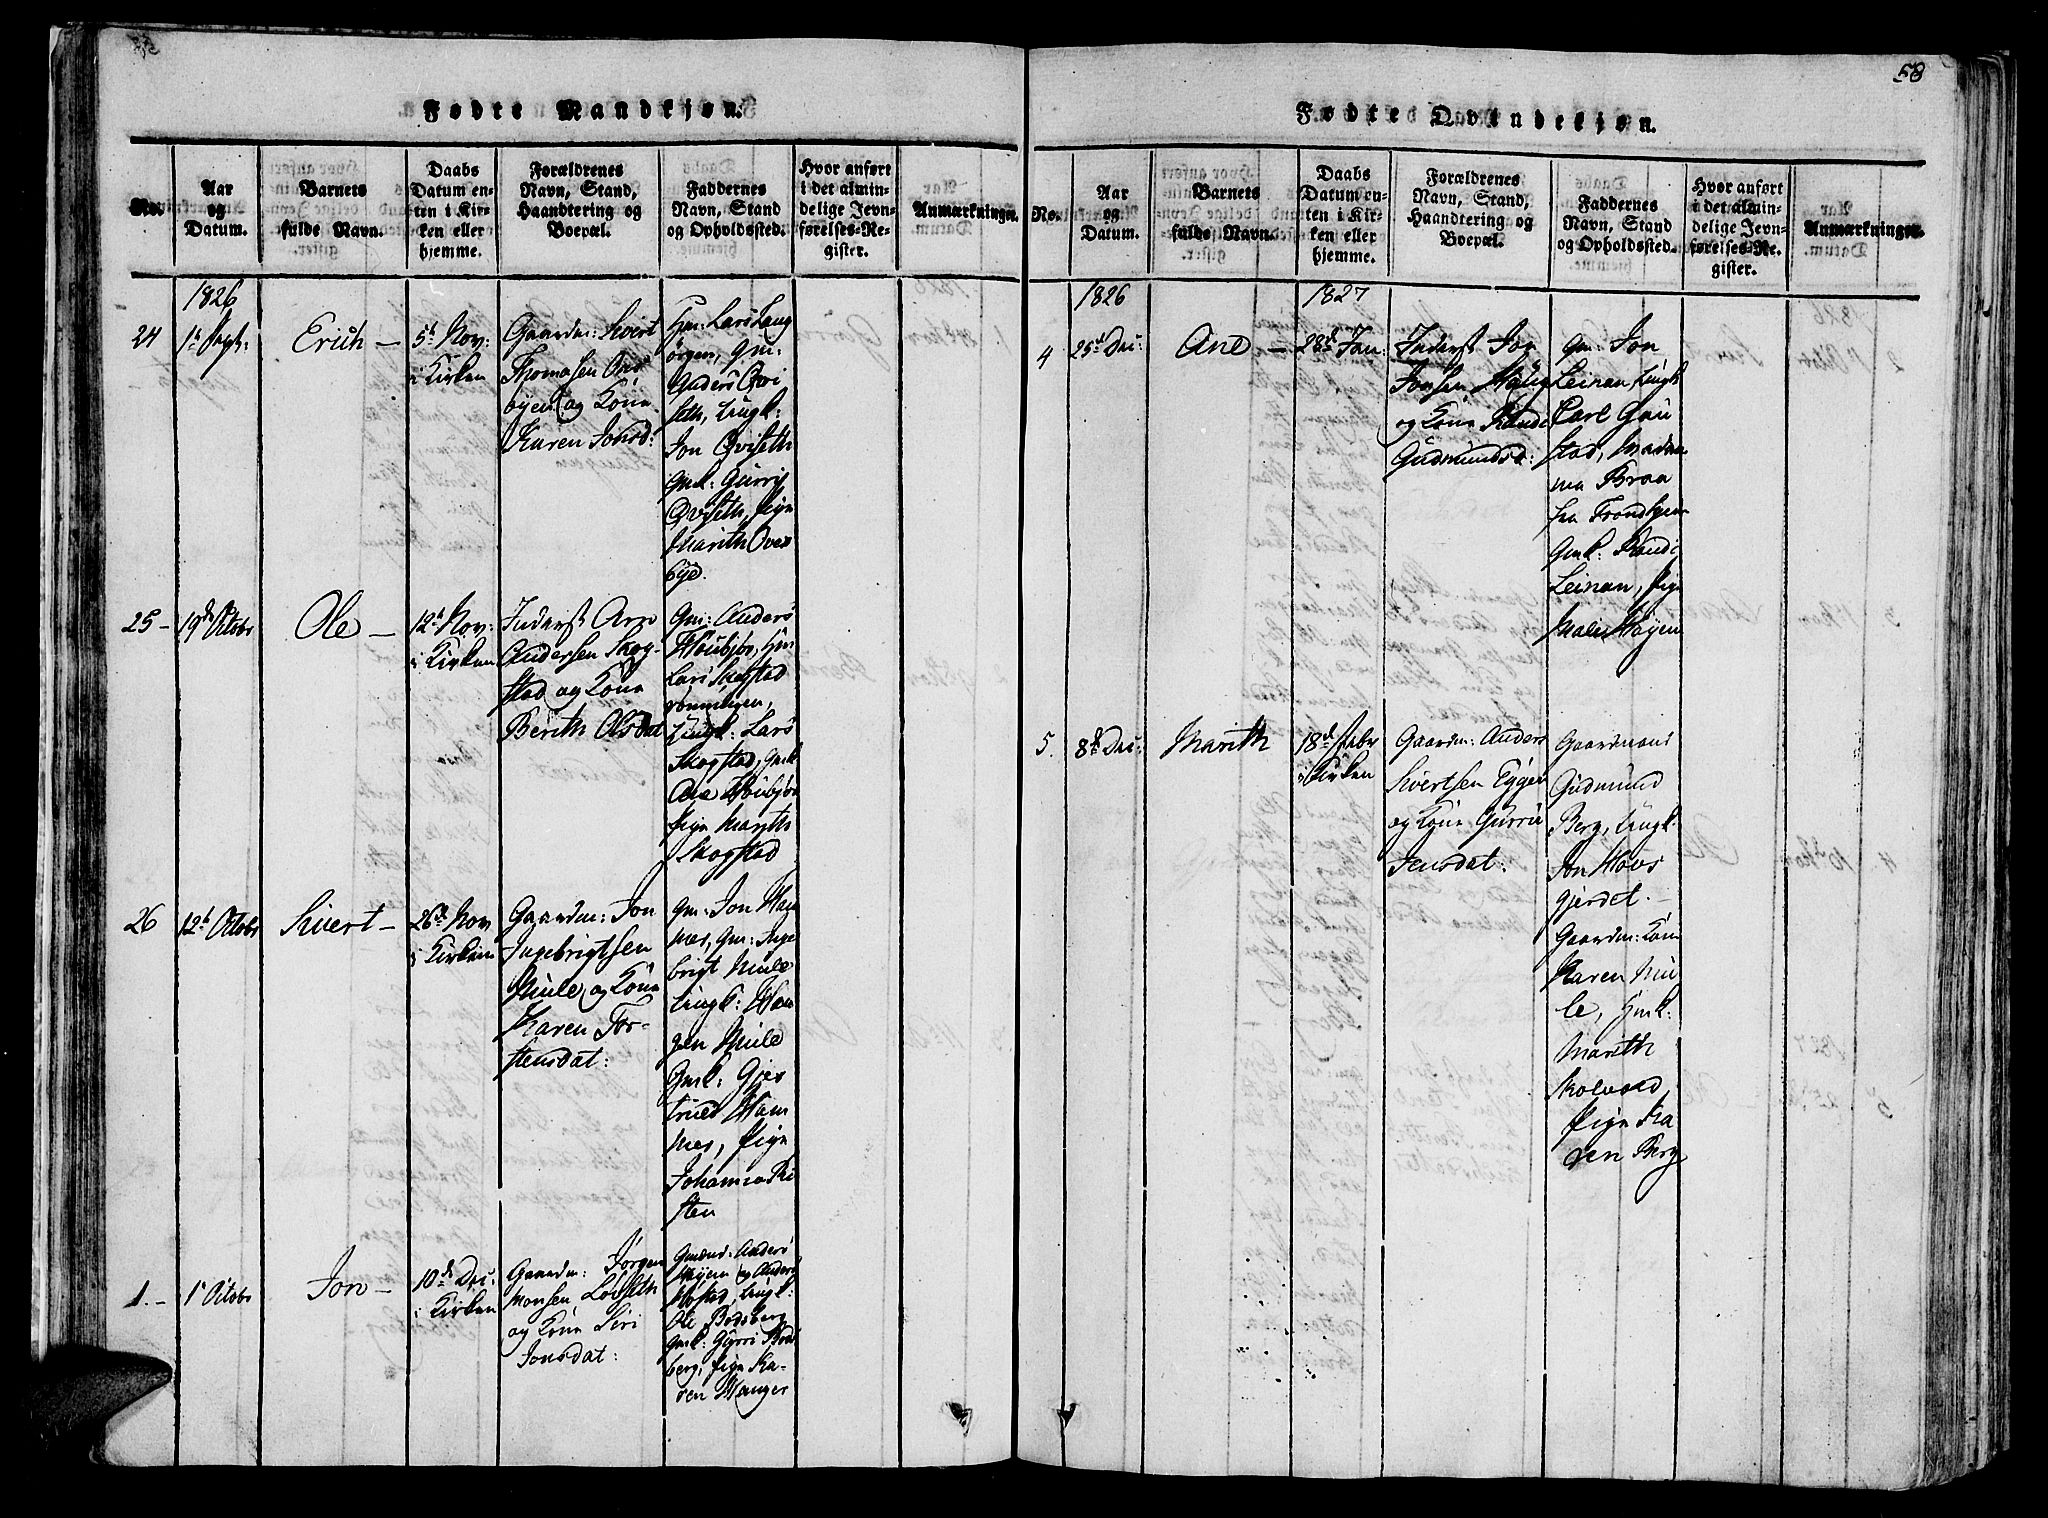 58
Fødte Mandkjøn.
No.
Aar
og
Datum.
Barnets
fulde Navn.
Daabs
Datum en-
ten i Kir-
ken eller
hjemme.
Forældrenes
Navn, Stand,
Haandtering og
Boepæl.
Faddernes
Navn, Stand
og Opholdssted.
Hvor anført
i det almin-
delige Jevn-
førelses-Re-
gister.
Anmærkninger.
1826
24
1ste Septr:
Erich
5te Nov:
i Kirken
Gaardm: Sivert
Thomasen
og Kone
Karen Jonsd:
Hm: Lars Laug
Jørgen, Gm:
Anders Qvi
seth, Ungk:
Jon Qviseth
Gmk: Gurri
Qviseth, Pige
Marith Over
bye.
25
19de Octobr
Ole
12te Nov:
i Kirken
Inderst Arn
Andersen Skog-
stad og Kone
Berith Olsdat
Gm: Anders
Houbjør, Hm
Lars Skogstad
Ungk: Lars
Skogstad, Gmk
Ane Houbjør
Pige Marith
Skogstad
26
12te Octobr
Sivert
26de Nov
i Kirken
Gaardm: Jon
Ingebrigtsen
Mule og Kone
Karen Tor-
stensdat:
Gm: Jon Ham
mer, Gm: Inge
brigt Mule
Ungk: Han
Mule
Gmk: Gjer
trued Ham
mer, Pige
Johanna Ri
sten
1.
1ste Octobr
Jon
10de Dec:
i Kirken
Gaardm: Jørgen
Monsen Løvseth
og Kone Siri
Jonsdat:
Gmænd: Anders
og Anders
Mostad, Ungk:
Ole Bodsberg
Gmk: Gurri Bods
berg, Pige Ka-
ren Hanger
Fødte Qvindekjøn.
No.
Aar
og
Datum.
Barnets
fulde Navn.
Daabs
Datum en-
ten i Kir-
ken eller
hjemme.
Forældrenes
Navn, Stand,
Haandtering og
Boepæl.
Faddernes
Navn, Stand
og Opholdssted.
Hvor anført
i det almin-
delige Jevn-
førelses-Re-
gister.
Anmærkninger.
1826
1827
4
25de Dec:
Ane
28de Jan:
Inderst Jon
Jonsen Haug
og Kone Randi
Gudmundsd:
Gm: Jon
Leinan, Ungk
Carl Gau
stad, Madm
Braa
fra Trondhjem
Gmk: Randi
Leinan, Pige
Malen Høyen
5.
8de Dec:
Marith
18de Febr
i Kirken
Gaardm: Anders
Sivertsen Eggen
og Kone Gurru
Jensdat:
Gaardmand
Gudmund
Berg, Ungk.
Jon Hovs
gjerdet.
Gaardm: Kone
Karen Mu
le, Hmk:
Marith
Molvold,
Pige Ka
ren Berg